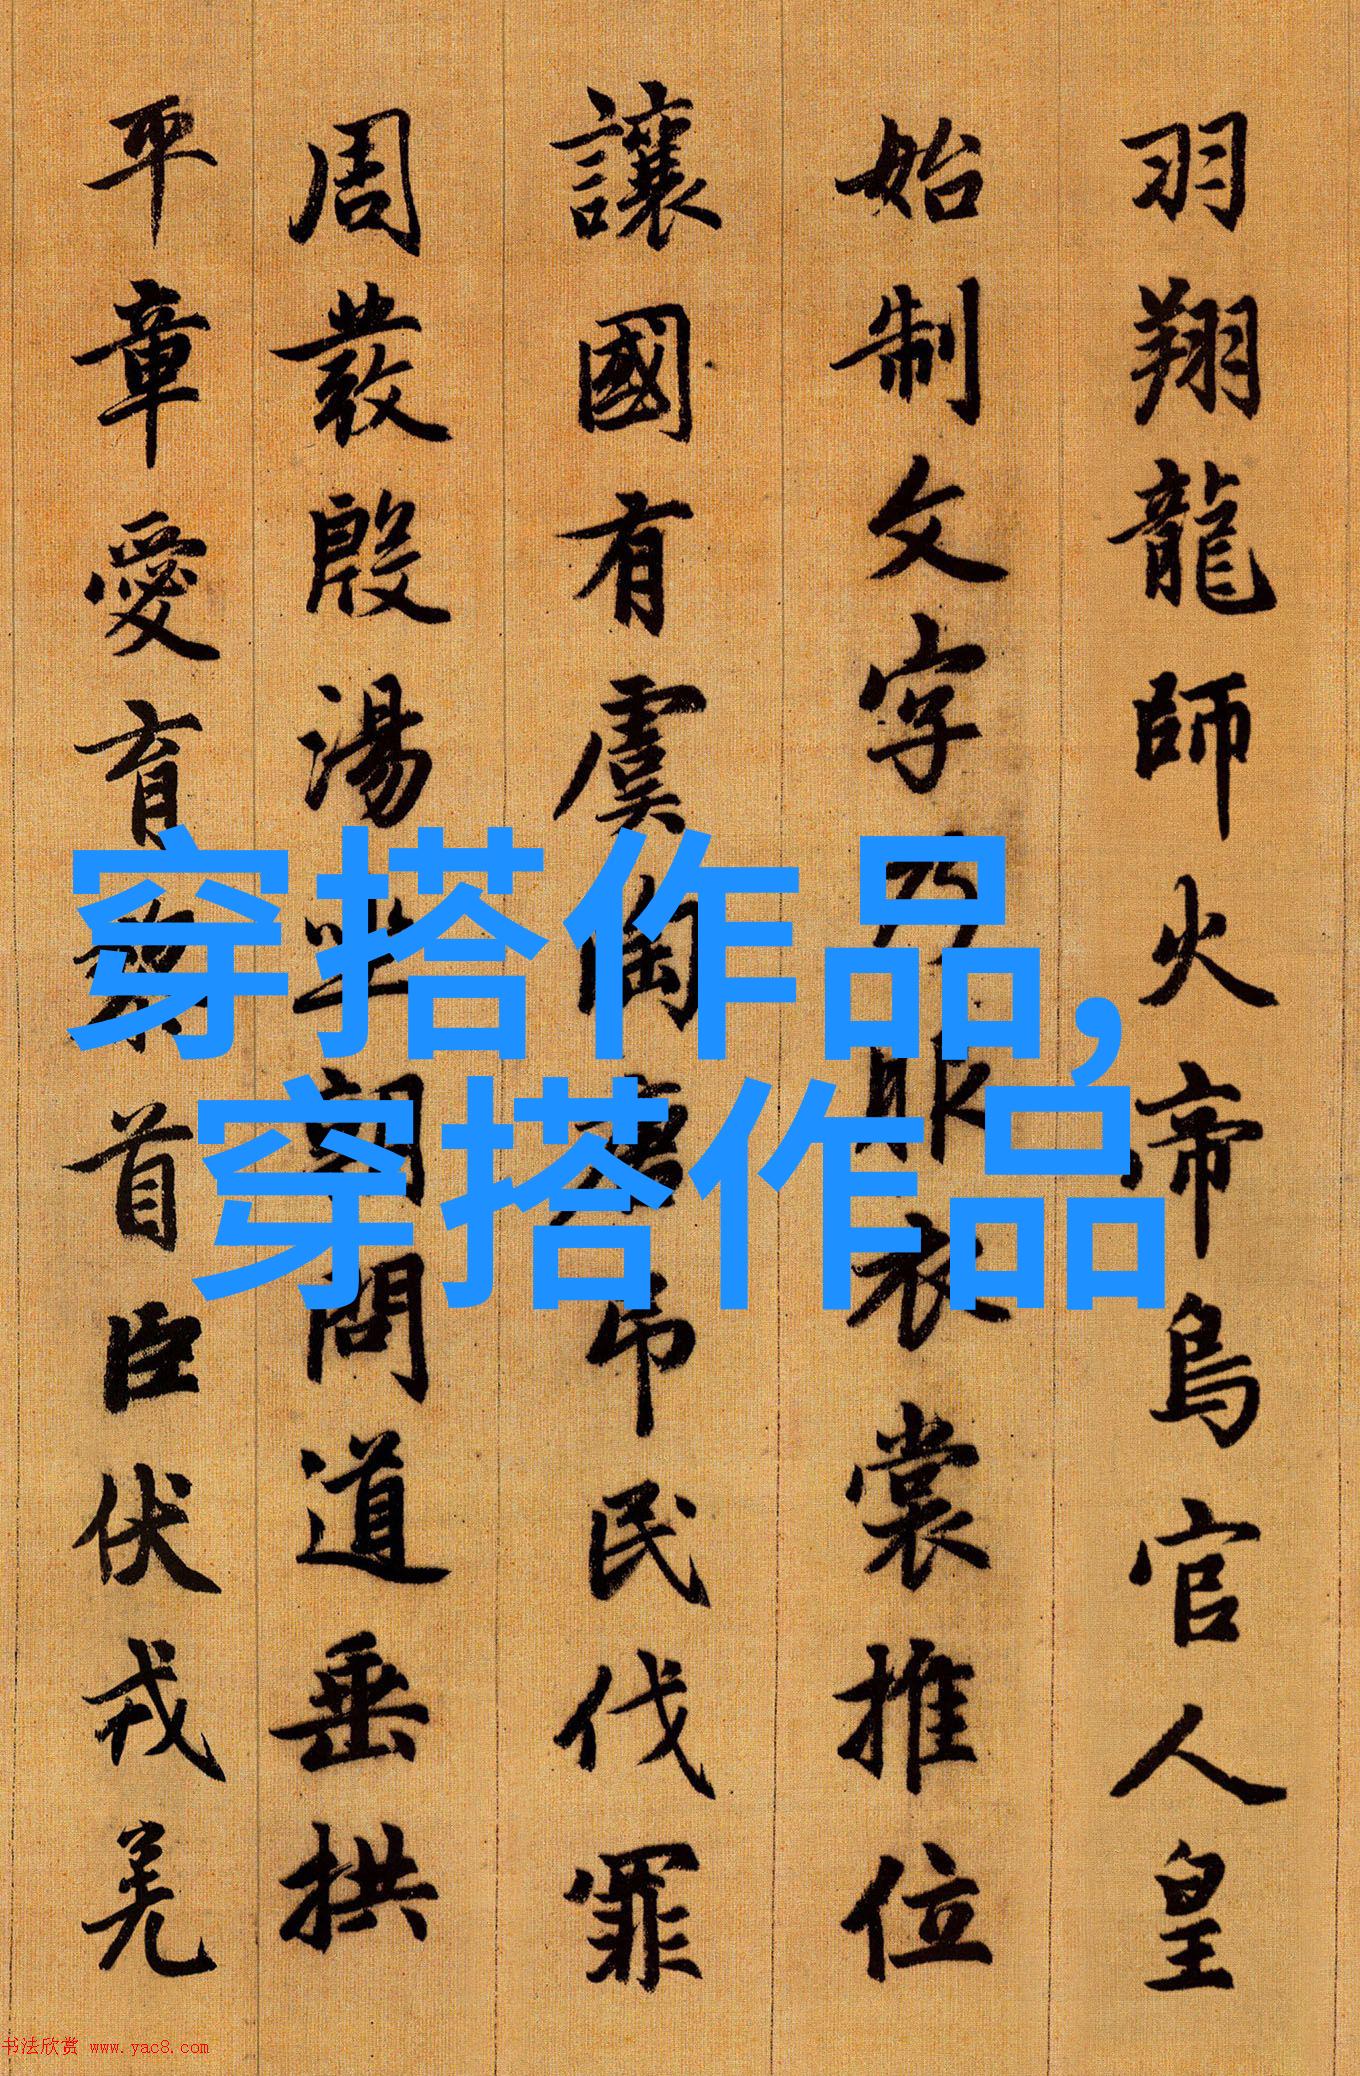 羽翔龍師火帝鳥官人皇
始制文字乃服衣裳推位
讓國有虞陶唐吊民伐罪
周發殷湯坐朝問道垂拱
平章愛育黎首臣伏戎羌
穿搭作品,
穿搭作品
书法欣赏 www.yac8.com